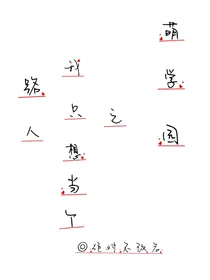 萌学园
之
我只想当个
路人
◎绝对不改名